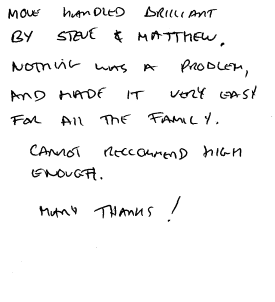 MOVE HANDLED BRILLIANT
BY STEVE & MATTHEW.
NOTHING WAS A PROBLEM,
AND MADE IT VERY EASY
FOR ALL THE FAMILY.
CANNOT RECCOMMEND HIGH
ENOUGH.
MANY THANKS!